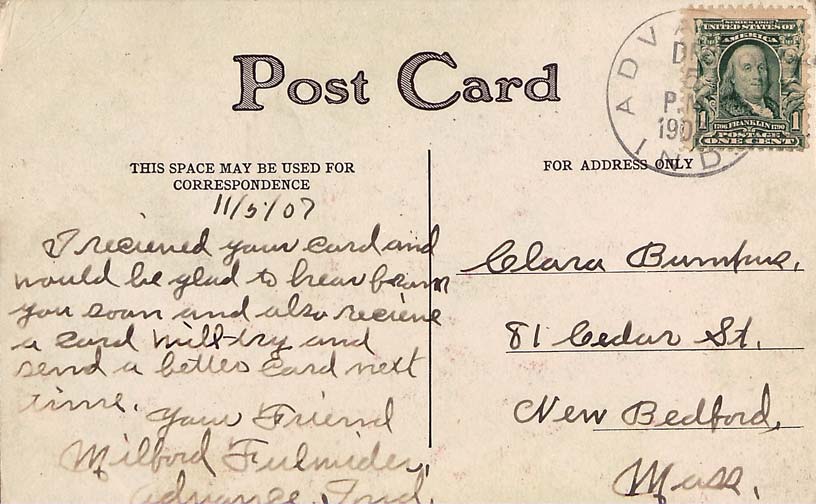 Post Card
SERIES 1902
UNITED STATES OF
AMERICA
1 1706 FRANKLIN 1790 1
POSTAGE
ONE CENT
ADV
DEC
5
P.M.
190
IND
THIS SPACE MAY BE USED FOR
CORRESPONDENCE
FOR ADDRESS ONLY
11/5/07
I recieved your card and
would be glad to hear from
you soon and also recieve
a card will try and
send a better card next
time.
Your Friend
Milford
Advance, Ind.
Clara Bumpus,
81 Cedar St.
New Bedford,
Mass.